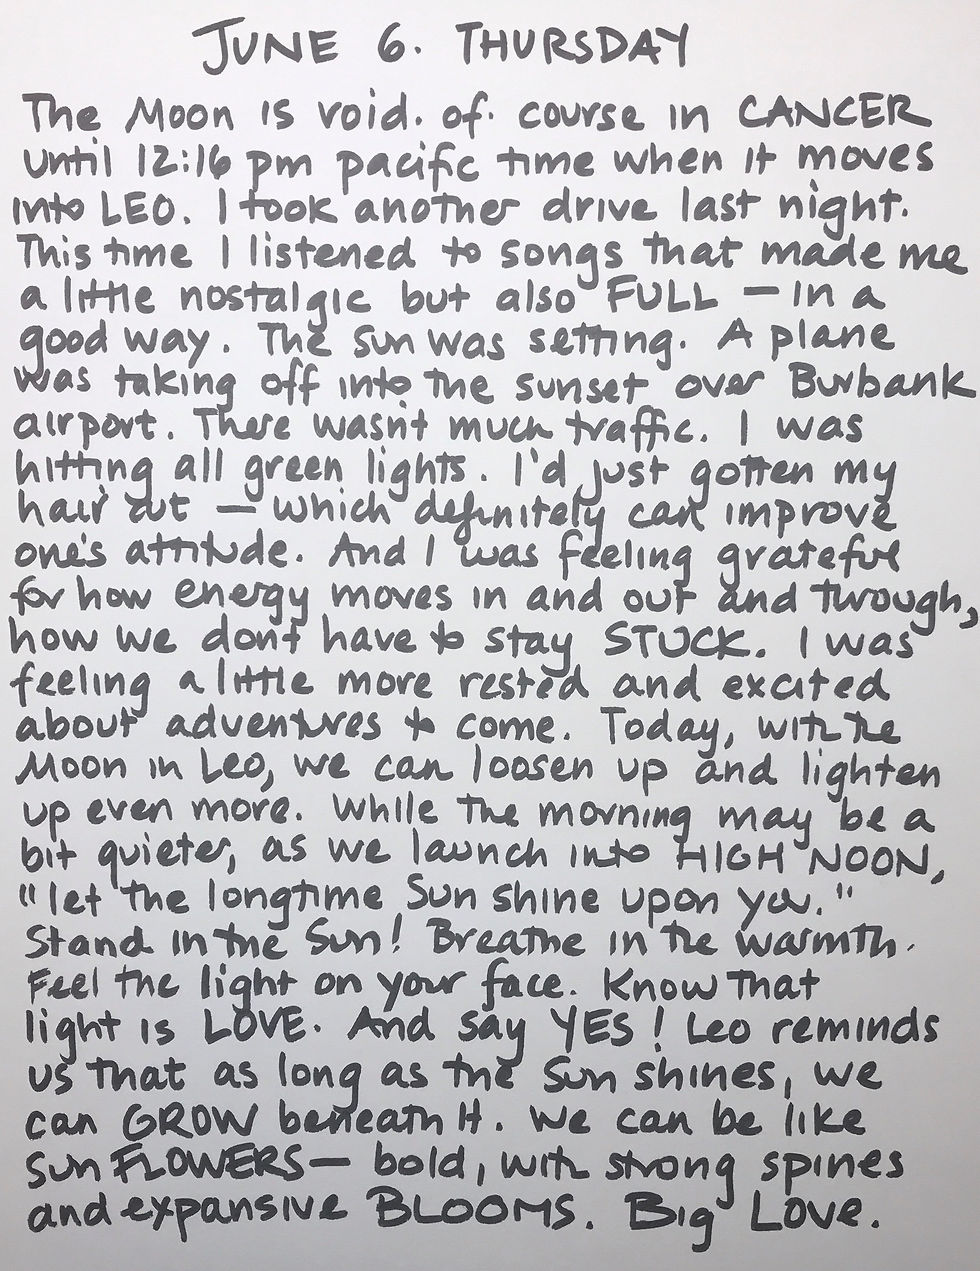 JUNE 6. THURSDAY
The Moon is void. of. course in CANCER
until 12:16 pm pacific time when it moves
into LEO. I took another drive last night.
This time I listened to songs that made me
a little nostalgic but also FULL — in a
good way. The sun was setting. A plane
was taking off into the sunset over Burbank
airport. There wasn't much traffic. I was
hitting all green lights. I'd just gotten my
hair cut — which definitely can improve
one's attitude. And I was feeling grateful
for how energy moves in and out and through,
how we don't have to stay STUCK. I was
feeling a little more rested and excited
about adventures to come. Today, with the
Moon in Leo, we can loosen up and lighten
up even more. While the morning may be a
bit quieter, as we launch into HIGH NOON,
"let the longtime Sun shine upon you."
Stand in the Sun! Breathe in the warmth.
Feel the light on your face. Know That
light is LOVE. And say YES! Leo reminds
us that as long as the Sun shines, we
can GROW beneath it. We can be like
sunFLOWERS — bold, with strong spines
and expansive BLOOMS. Big Love.